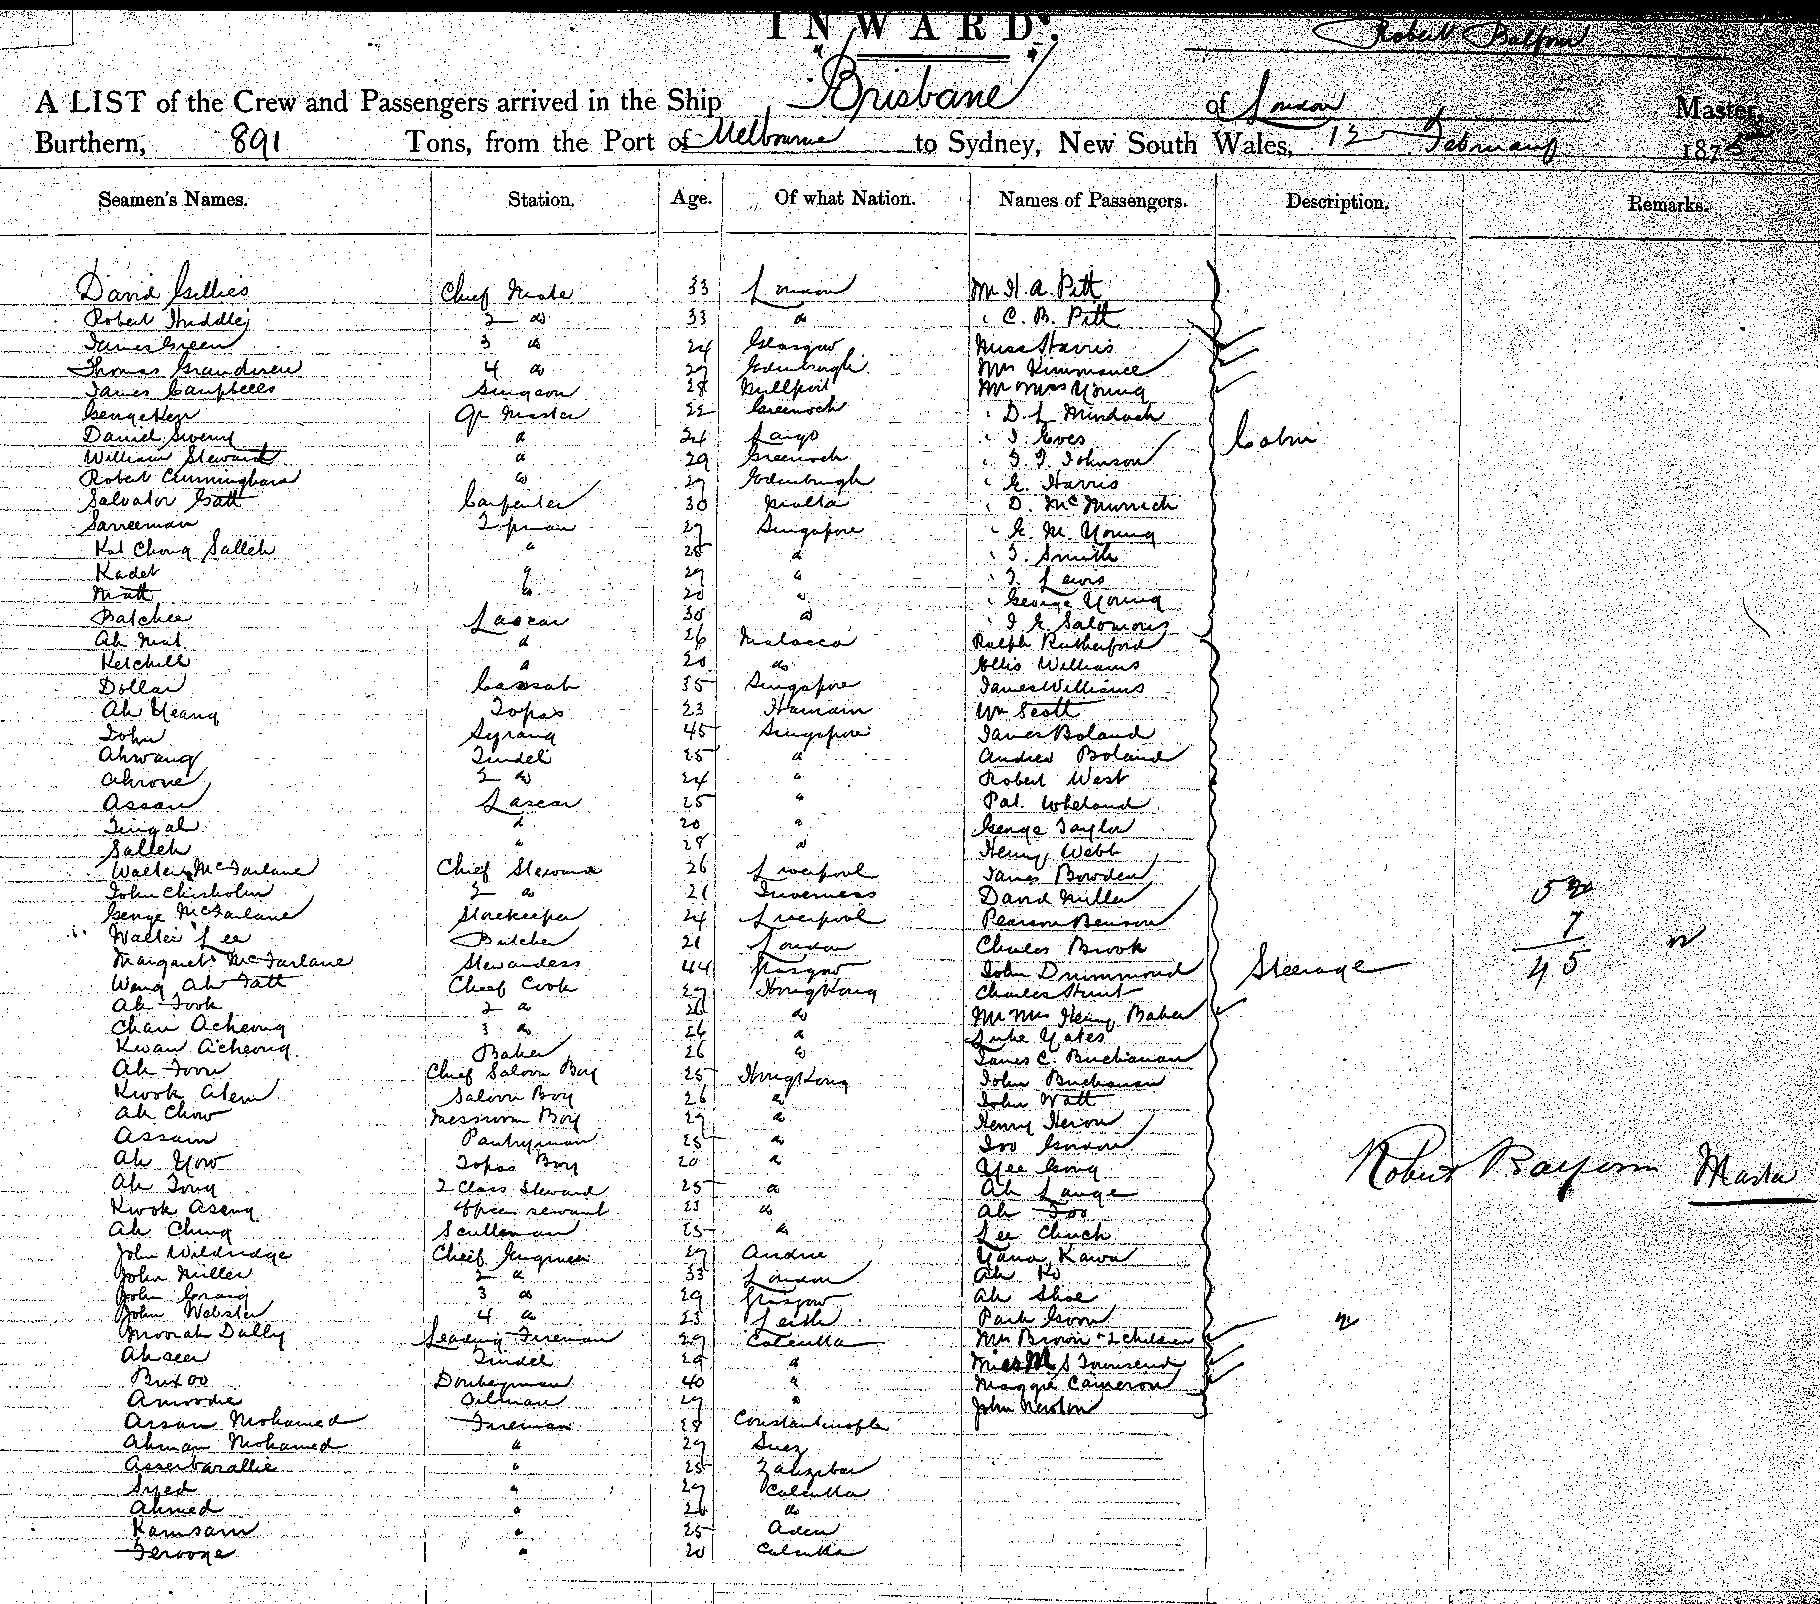 INWARD.
Robert Balfour
A LIST of the Crew and Passengers arrived in the Ship "Brisbane" of London Master,
Burthern, 891 Tons, from the Port of Melbourne to Sydney, New South Wales, 12 of February 187
Seamen's Names. Station. Age. Of what Nation. Names of Passengers. Description. Remarks.
David Gillies Chief Mate 33 London Mr H. A. Pitt
Robert Huddley 2 do 33 do " C. B. Pitt
James Green 3 do 24 Glasgow Miss Harris
Thomas 4 do 27 Edinburgh Mrs Kimmance
James Campbell Surgeon 28 Millport Mr Mrs Young
George Kerr Qr Master 22 Greenock " D. L. Murdoch
Daniel Sweeny do 24 Largs " J. Eves Cabin
William Steward do 29 Greenock " J. J. Johnson
Robert Cunningham do 27 Edinburgh " G. Harris
Salvator Gatt Carpenter 30 Malta " D. McMurrich
Sarreeman Topman 27 Singapore " G. M. Young
Kal Chong Salleh " 28 do " J. Smith
Kader " 27 " " J. Lewis
Matt " 20 do " George Young
Batchee Lascar 30 do " J. G. Salomons
Ah Mat do 26 Malacca Ralph Rutherford
Ketchill do 20 do Ellis Williams
Dollar Cassab 35 Singapore James Williams
Ah Yeang Topas 23 Hainain Wm Scott
John Syrang 45 Singapore James Boland
Ahwang Tindel 25 do Andrew Boland
Ahrone 2 do 24 " Robert West
Assan Lascar 25 " Pat. Wheland
Tingal do 20 " George Taylor
Salleh " 28 do Henry Webb
Walter McFarlane Chief Steward 26 Liverpool James Bowden
John Chisholm 2 do 21 Inverness David Miller
George McFarlane Storekeeper 24 Liverpool Pearson Benson
Walter Lee Butcher 21 London Charles Brook
Margaret McFarlane Stewardess 44 Glasgow John Drummond Steerage
52
7
45
Wang Ah Tatt Cheef Cook 27 Hong Kong Charles Strut
Ah Fook 2 do 20 do Mr Mrs Henry Baker
Chan Acheong 3 do 26 do Luke Yates
Kwan Acheong Baker 26 do James C. Buchanan
Ah Foon Chief Saloon Boy 25 Hong Kong John Buchanan
Kwok Alem Saloon Boy 26 do John Watt
Ah Chow Messroom Boy 27 do Henry Heron
Assam Pantryman 25 do Joo
Ah Yow Topas Boy 20 do Yee Gong
Robert Balfour Master
Ah Tong 2 Class Steward 25 do Ah Lange
Kwok Aseng Officer servant 23 do Ah Foo
Ah Ching Sculleman 25 do Lee Chuck
John Wildridge Cheef Engineer 27 Yana Kawa
John Miller 2 do 33 London Ah Ko
John Craig 3 do 29 Glasgow Ah Shoe
John Webster 4 do 23 Leith
Moorah Dully Leading Fireman 27 Calcutta Mrs Brown & 2 children
Ahseer Tindel 29 do Miss M S Townsend
Buxoo Donkeyman 40 " Maggie Cameron
Amoodie Oilman 27 " John Newton
Assan Mohamed Fireman 28 Constantinople
Ahman Mohamed " 27 Suez
Asserbarallie " 25 Zanzibar
Syed " 27 Calcutta
Ahmed " 26 do
Ramsam " 25 Aden
Ferooze " 20 Calcutta